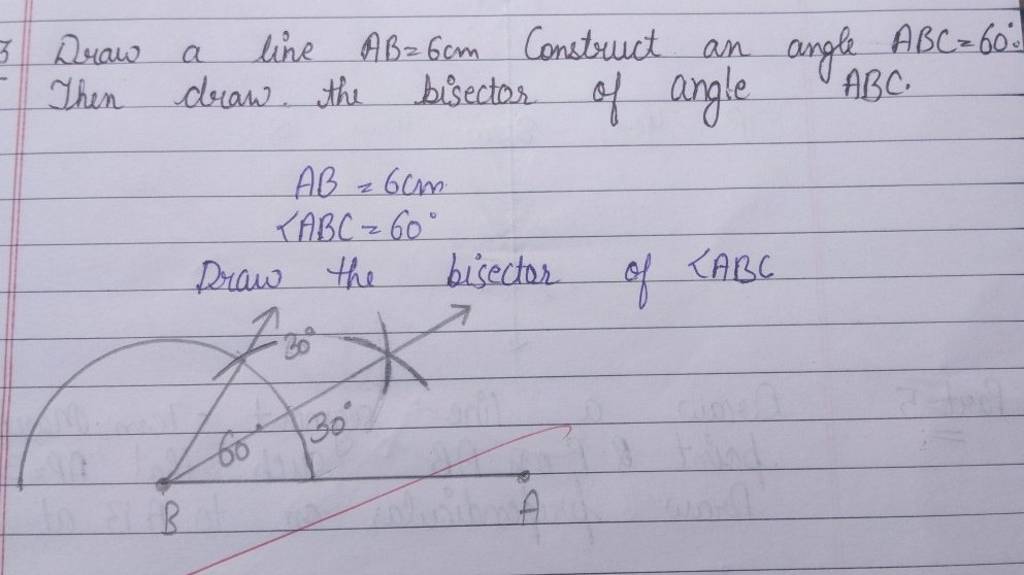 3 Draw a line AB=6cm Construct an angle ABC=60°.
Then draw the bisector of angle ABC.
AB = 6cm
∠ABC = 60°
Draw the bisector of ∠ABC
30°
30°
60°
B A